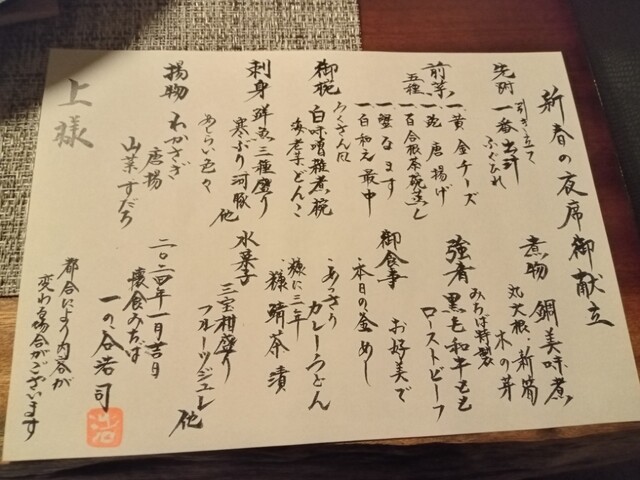 新春の夜席御献立
先附 一番出汁
引き立て
ふぐひれ
前菜
五種
一、黄金チーズ
一、鮑唐揚げ
一、百合根茶碗蒸し
一、蟹なます
一、白和え最中
御椀 白味噌雑煮椀
ろくさん風
海老芋どんこ
刺身 鮮魚三種盛り
寒ぶり河豚他
あしらい色々
揚物 わかさぎ
唐揚
山菜すだち
煮物 鯛美味煮
丸大根・新筍
木の芽
強肴 黒毛和牛もも
みちば特製
ローストビーフ
御食事 お好美で
本日の釜めし
あっさりカレーうどん
糠に三年
糠鯖茶漬
水菓子 三宝柑盛り
フルーツジュレ他
二〇二四年一月吉日
懐食みちば
一の谷浩司
上様
都合により内容が
変わる場合がございます